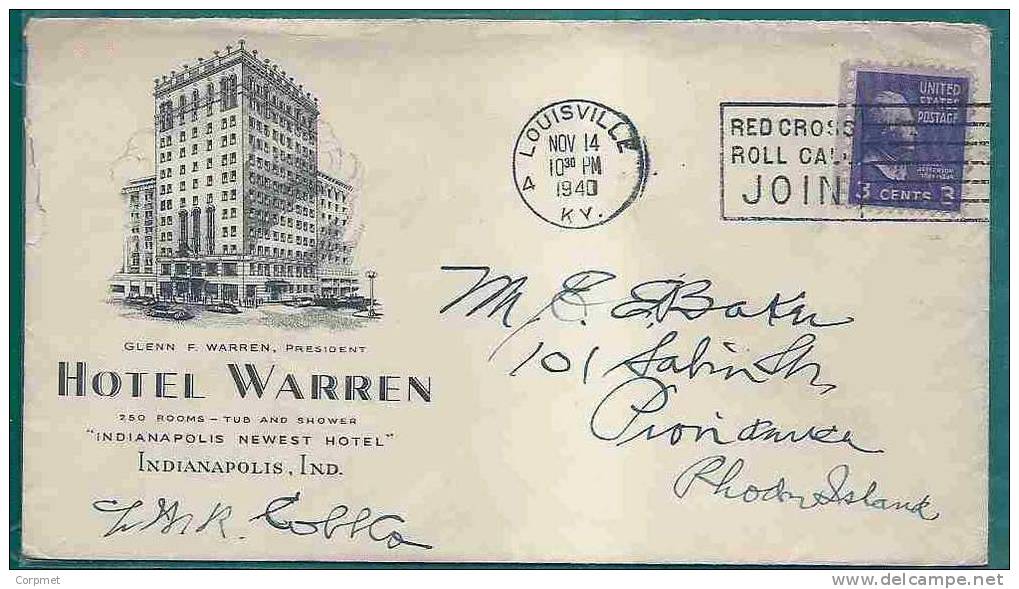 GLENN F. WARREN, PRESIDENT
HOTEL WARREN
250 ROOMS – TUB AND SHOWER
"INDIANAPOLIS NEWEST HOTEL"
INDIANAPOLIS, IND.
LOUISVILLE
NOV 14
10 30 PM
1940
4 KY.
RED CROSS
ROLL CAL
JOIN
UNITED
STATES
POSTAGE
JEFFERSON
3 CENTS 3
M E. E. Baker
101 Sabin St,
Providence
Rhode Island
Corpmet
www.delcampe.net